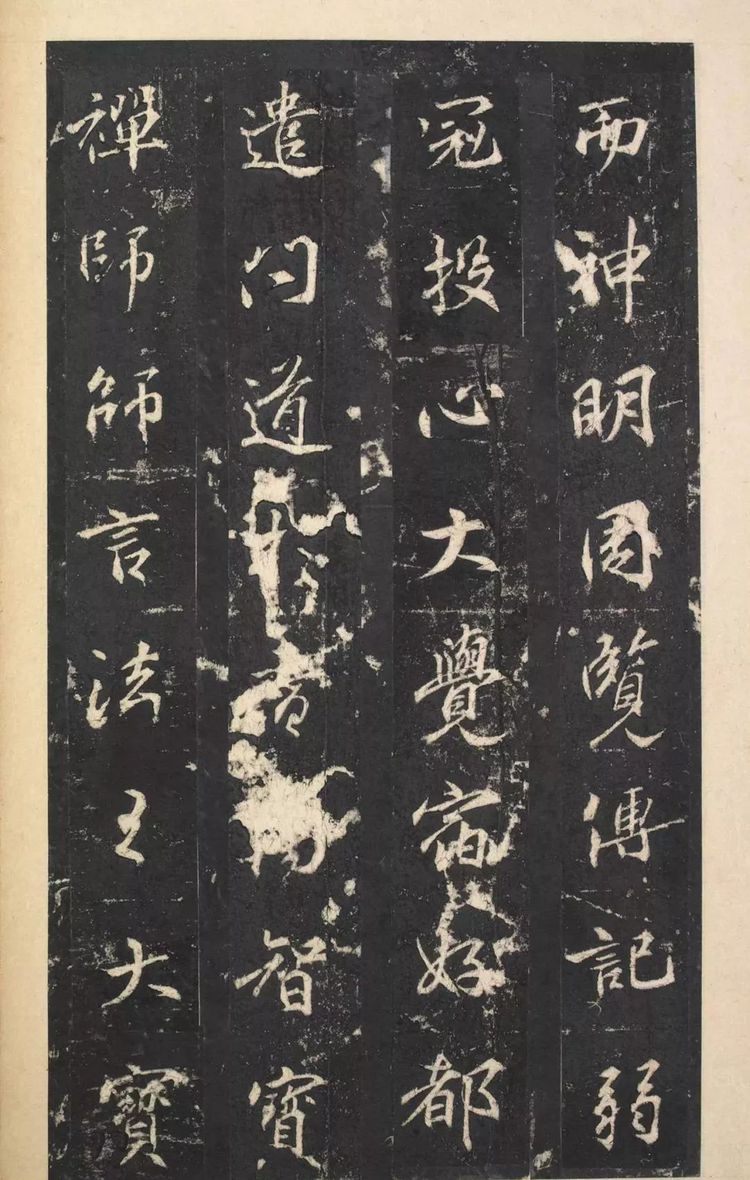 而神明周覽傳記弱
冠投心大覺好都
遣問道智寶
禪師師言法王大寶